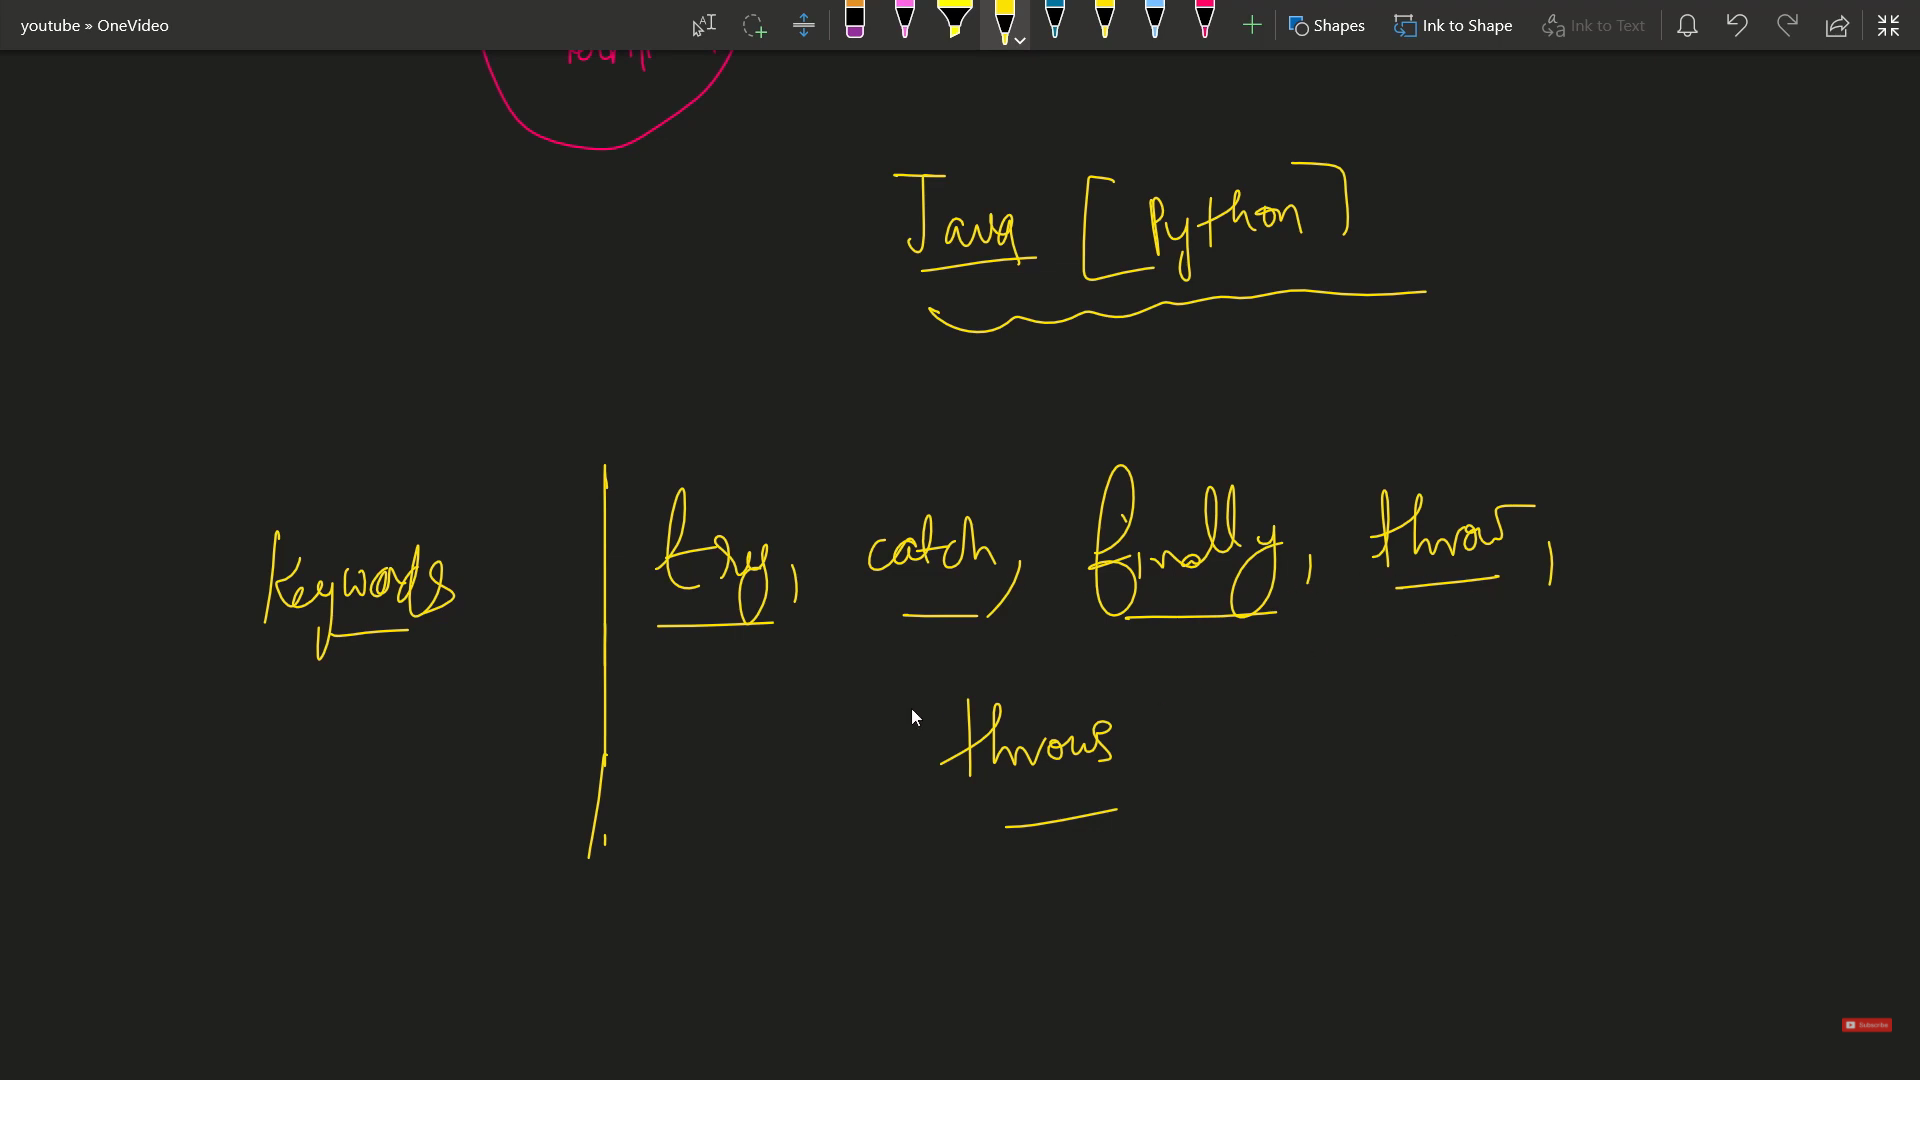 youtube » OneVideo
Shapes
Ink to Shape
Ink to Text
Java [Python]
Keywords
try, catch, finally, throw,
throws
Subscribe